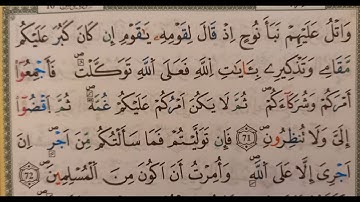 وَاتْلُ عَلَيْهِمْ نَبَأَ نُوحٍ إِذْ قَالَ لِقَوْمِهِ يَاقَوْمِ إِن كَانَ كَبُرَ عَلَيْكُم
مَّقَامِي وَتَذْكِيرِي بِـَٔايَاتِ اللَّهِ فَعَلَى اللَّهِ تَوَكَّلْتُ فَأَجْمِعُوا
أَمْرَكُمْ وَشُرَكَاءَكُمْ ثُمَّ لَا يَكُنْ أَمْرُكُمْ عَلَيْكُمْ غُمَّةً ثُمَّ اقْضُوا
إِلَيَّ وَلَا تُنظِرُونِ ۝71 فَإِن تَوَلَّيْتُمْ فَمَا سَأَلْتُكُم مِّنْ أَجْرٍ إِنْ
أَجْرِيَ إِلَّا عَلَى اللَّهِ وَأُمِرْتُ أَنْ أَكُونَ مِنَ الْمُسْلِمِينَ ۝72